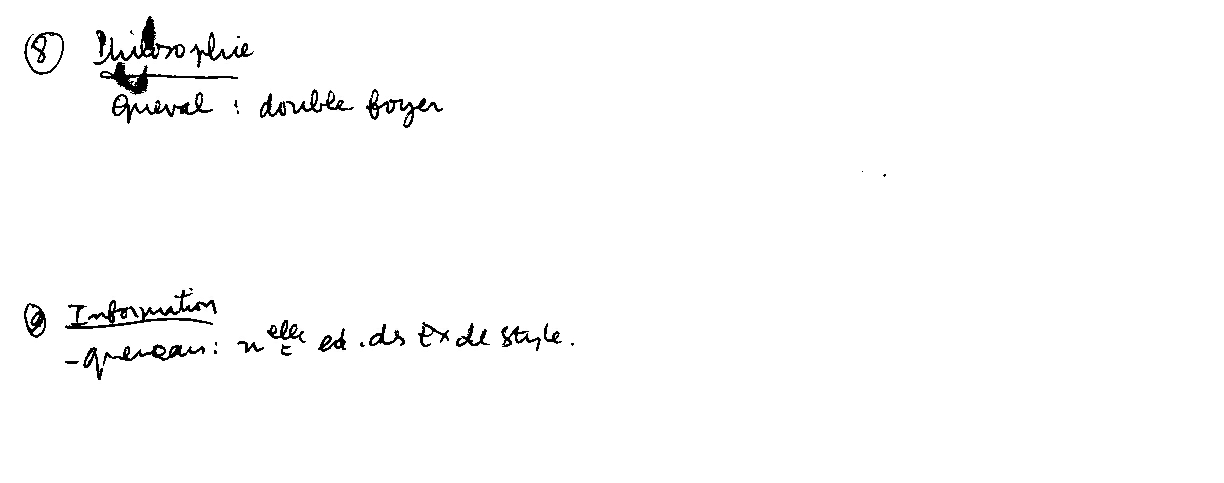 ⑧ Philosophie
Queval : double foyer
⑨ Information
- Queneau : nelle ed. des Ex de style.